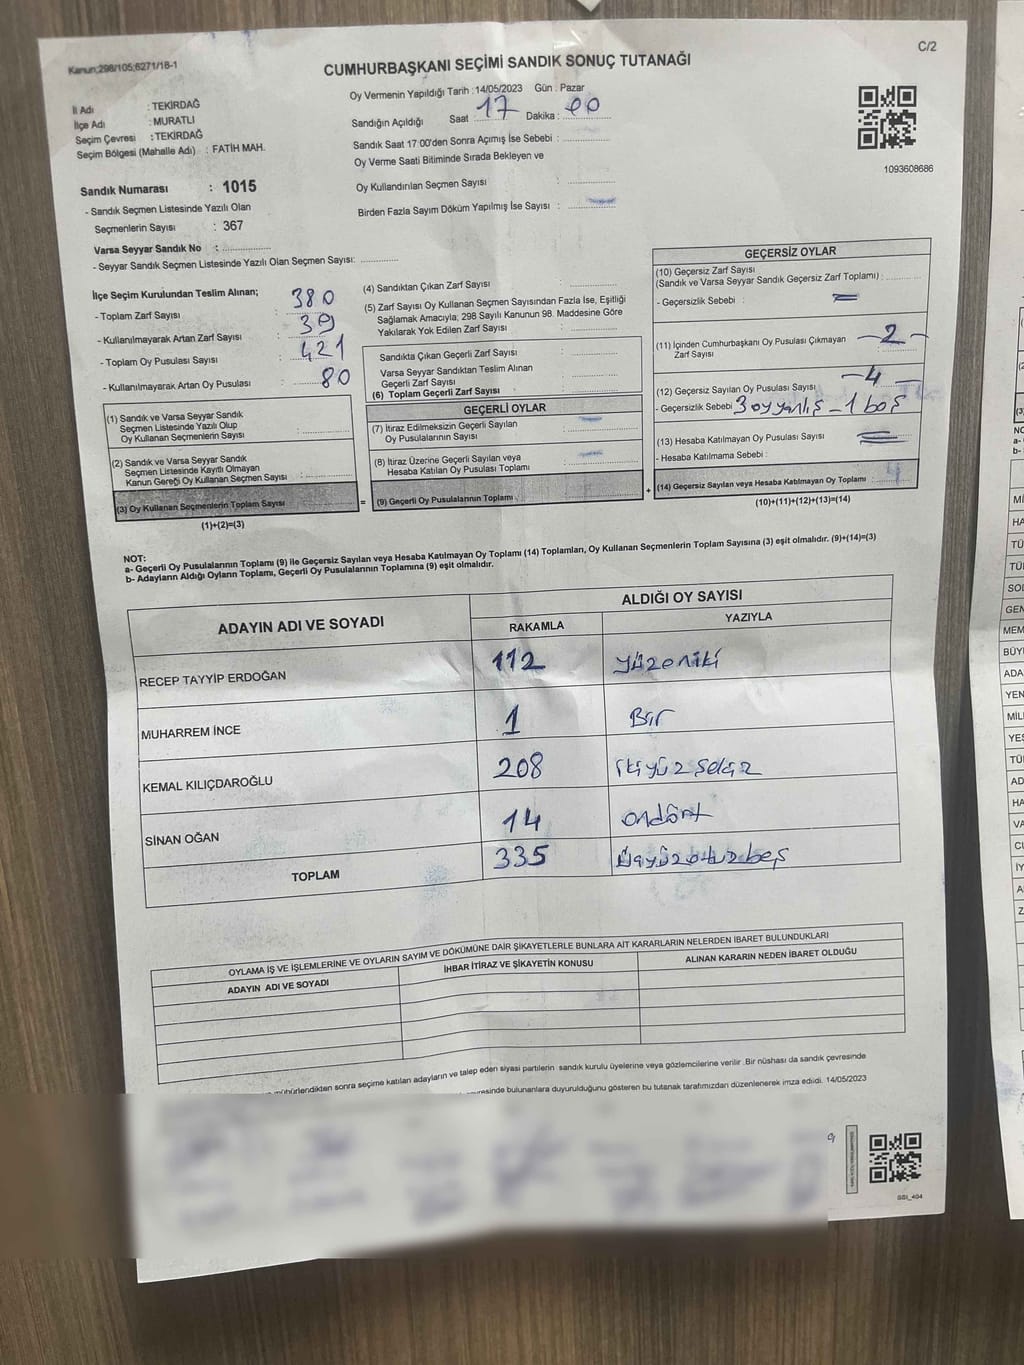 Kanun;298/105;6271/18-1
C/2
CUMHURBAŞKANI SEÇİMİ SANDIK SONUÇ TUTANAĞI
Oy Vermenin Yapıldığı Tarih : 14/05/2023 Gün : Pazar
İl Adı : TEKİRDAĞ
İlçe Adı : MURATLI
Seçim Çevresi : TEKİRDAĞ
Seçim Bölgesi (Mahalle Adı) : FATİH MAH.
Sandığın Açıldığı Saat : 17 Dakika : 00
Sandık Saat 17:00'den Sonra Açımış İse Sebebi :
Oy Verme Saati Bitiminde Sırada Bekleyen ve
Oy Kullandırılan Seçmen Sayısı :
Birden Fazla Sayım Döküm Yapılmış İse Sayısı :
1093608686
Sandık Numarası : 1015
- Sandık Seçmen Listesinde Yazılı Olan
Seçmenlerin Sayısı : 367
Varsa Seyyar Sandık No :
- Seyyar Sandık Seçmen Listesinde Yazılı Olan Seçmen Sayısı:
İlçe Seçim Kurulundan Teslim Alınan;
- Toplam Zarf Sayısı : 380
- Kullanılmayarak Artan Zarf Sayısı : 39
- Toplam Oy Pusulası Sayısı : 421
- Kullanılmayarak Artan Oy Pusulası : 80
(1) Sandık ve Varsa Seyyar Sandık
Seçmen Listesinde Yazılı Olup
Oy Kullanan Seçmenlerin Sayısı :
(2) Sandık ve Varsa Seyyar Sandık
Seçmen Listesinde Kayıtlı Olmayan
Kanun Gereği Oy Kullanan Seçmen Sayısı :
(3) Oy Kullanan Seçmenlerin Toplam Sayısı
(1)+(2)=(3)
(4) Sandıktan Çıkan Zarf Sayısı :
(5) Zarf Sayısı Oy Kullanan Seçmen Sayısından Fazla İse, Eşitliği
Sağlamak Amacıyla; 298 Sayılı Kanunun 98. Maddesine Göre
Yakılarak Yok Edilen Zarf Sayısı :
Sandıkta Çıkan Geçerli Zarf Sayısı :
Varsa Seyyar Sandıktan Teslim Alınan
Geçerli Zarf Sayısı :
(6) Toplam Geçerli Zarf Sayısı :
GEÇERLİ OYLAR
(7) İtiraz Edilmeksizin Geçerli Sayılan
Oy Pusulalarının Sayısı :
(8) İtiraz Üzerine Geçerli Sayılan veya
Hesaba Katılan Oy Pusulası Toplamı :
= (9) Geçerli Oy Pusulalarının Toplamı :
GEÇERSİZ OYLAR
(10) Geçersiz Zarf Sayısı
(Sandık ve Varsa Seyyar Sandık Geçersiz Zarf Toplamı) :
- Geçersizlik Sebebi :
(11) İçinden Cumhurbaşkanı Oy Pusulası Çıkmayan
Zarf Sayısı : -2-
(12) Geçersiz Sayılan Oy Pusulası Sayısı : -4-
- Geçersizlik Sebebi 3 oy yanlış - 1 boş
(13) Hesaba Katılmayan Oy Pusulası Sayısı :
- Hesaba Katılmama Sebebi :
+ (14) Geçersiz Sayılan veya Hesaba Katılmayan Oy Toplamı : 4
(10)+(11)+(12)+(13)=(14)
NOT:
a- Geçerli Oy Pusulalarının Toplamı (9) ile Geçersiz Sayılan veya Hesaba Katılmayan Oy Toplamı (14) Toplamları, Oy Kullanan Seçmenlerin Toplam Sayısına (3) eşit olmalıdır. (9)+(14)=(3)
b- Adayların Aldığı Oyların Toplamı, Geçerli Oy Pusulalarının Toplamına (9) eşit olmalıdır.
ADAYIN ADI VE SOYADI
ALDIĞI OY SAYISI
RAKAMLA YAZIYLA
RECEP TAYYİP ERDOĞAN 112 yüzoniki
MUHARREM İNCE 1 Bir
KEMAL KILIÇDAROĞLU 208 ikiyüz sekiz
SİNAN OĞAN 14 ondört
TOPLAM 335 üçyüzotuzbeş
OYLAMA İŞ VE İŞLEMLERİNE VE OYLARIN SAYIM VE DÖKÜMÜNE DAİR ŞİKAYETLERLE BUNLARA AİT KARARLARIN NELERDEN İBARET BULUNDUKLARI
ADAYIN ADI VE SOYADI İHBAR İTİRAZ VE ŞİKAYETİN KONUSU ALINAN KARARIN NEDEN İBARET OLDUĞU
mühürlendikten sonra seçime katılan adayların ve talep eden siyasi partilerin sandık kurulu üyelerine veya gözlemcilerine verilir. Bir nüshası da sandık çevresinde
bulunanlara duyurulduğunu gösteren bu tutanak tarafımızdan düzenlenerek imza edildi. 14/05/2023